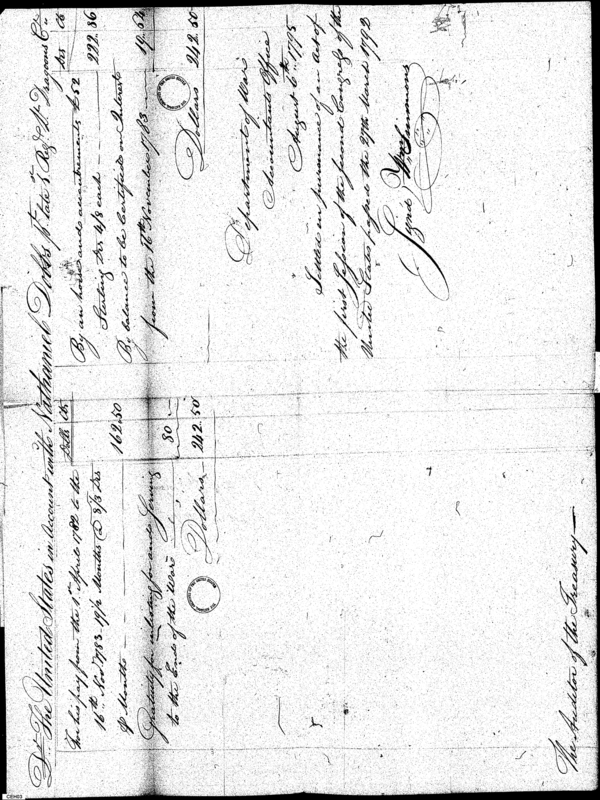 Dr. The United States in Account with Nathaniel Dobbs Pt. late 3rd Regt. Lt. Dragoons Cr.
Dolls Cts
For his pay from the 1st April 1782 to the
16th Novr. 1783 19 1/2 Months @ 8/3 Drs
Pr Month 162.50
Gratuity for enlisting for and serving
to the End of the War 80
Dollars 242.50
Drs Cts
By an horse and accoutrements £52
Sterling Drs 4/8 each 222.86
By balance to be Certified on Interest
from the 16th November 1783 19.64
Dollars 242.50
Department of War
Accountants Office
August 6th 1795
Settled in pursuance of an Act of
the first Session of the second Congress of the
United States passed the 27th March 1792
Signed Wm Simmons
The Auditor of the Treasury
CBH03